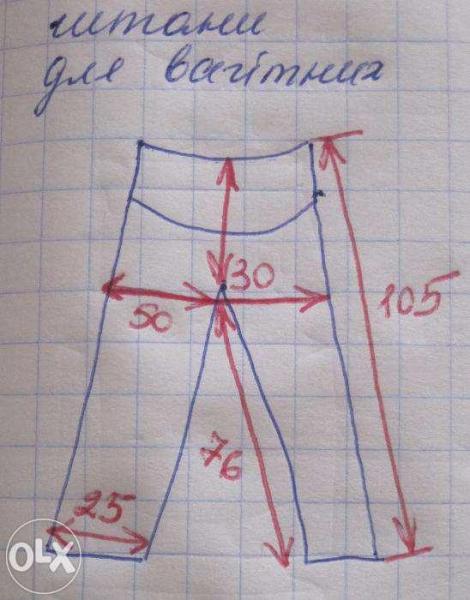 штани
для вагітних
30
50
105
76
25
OLX